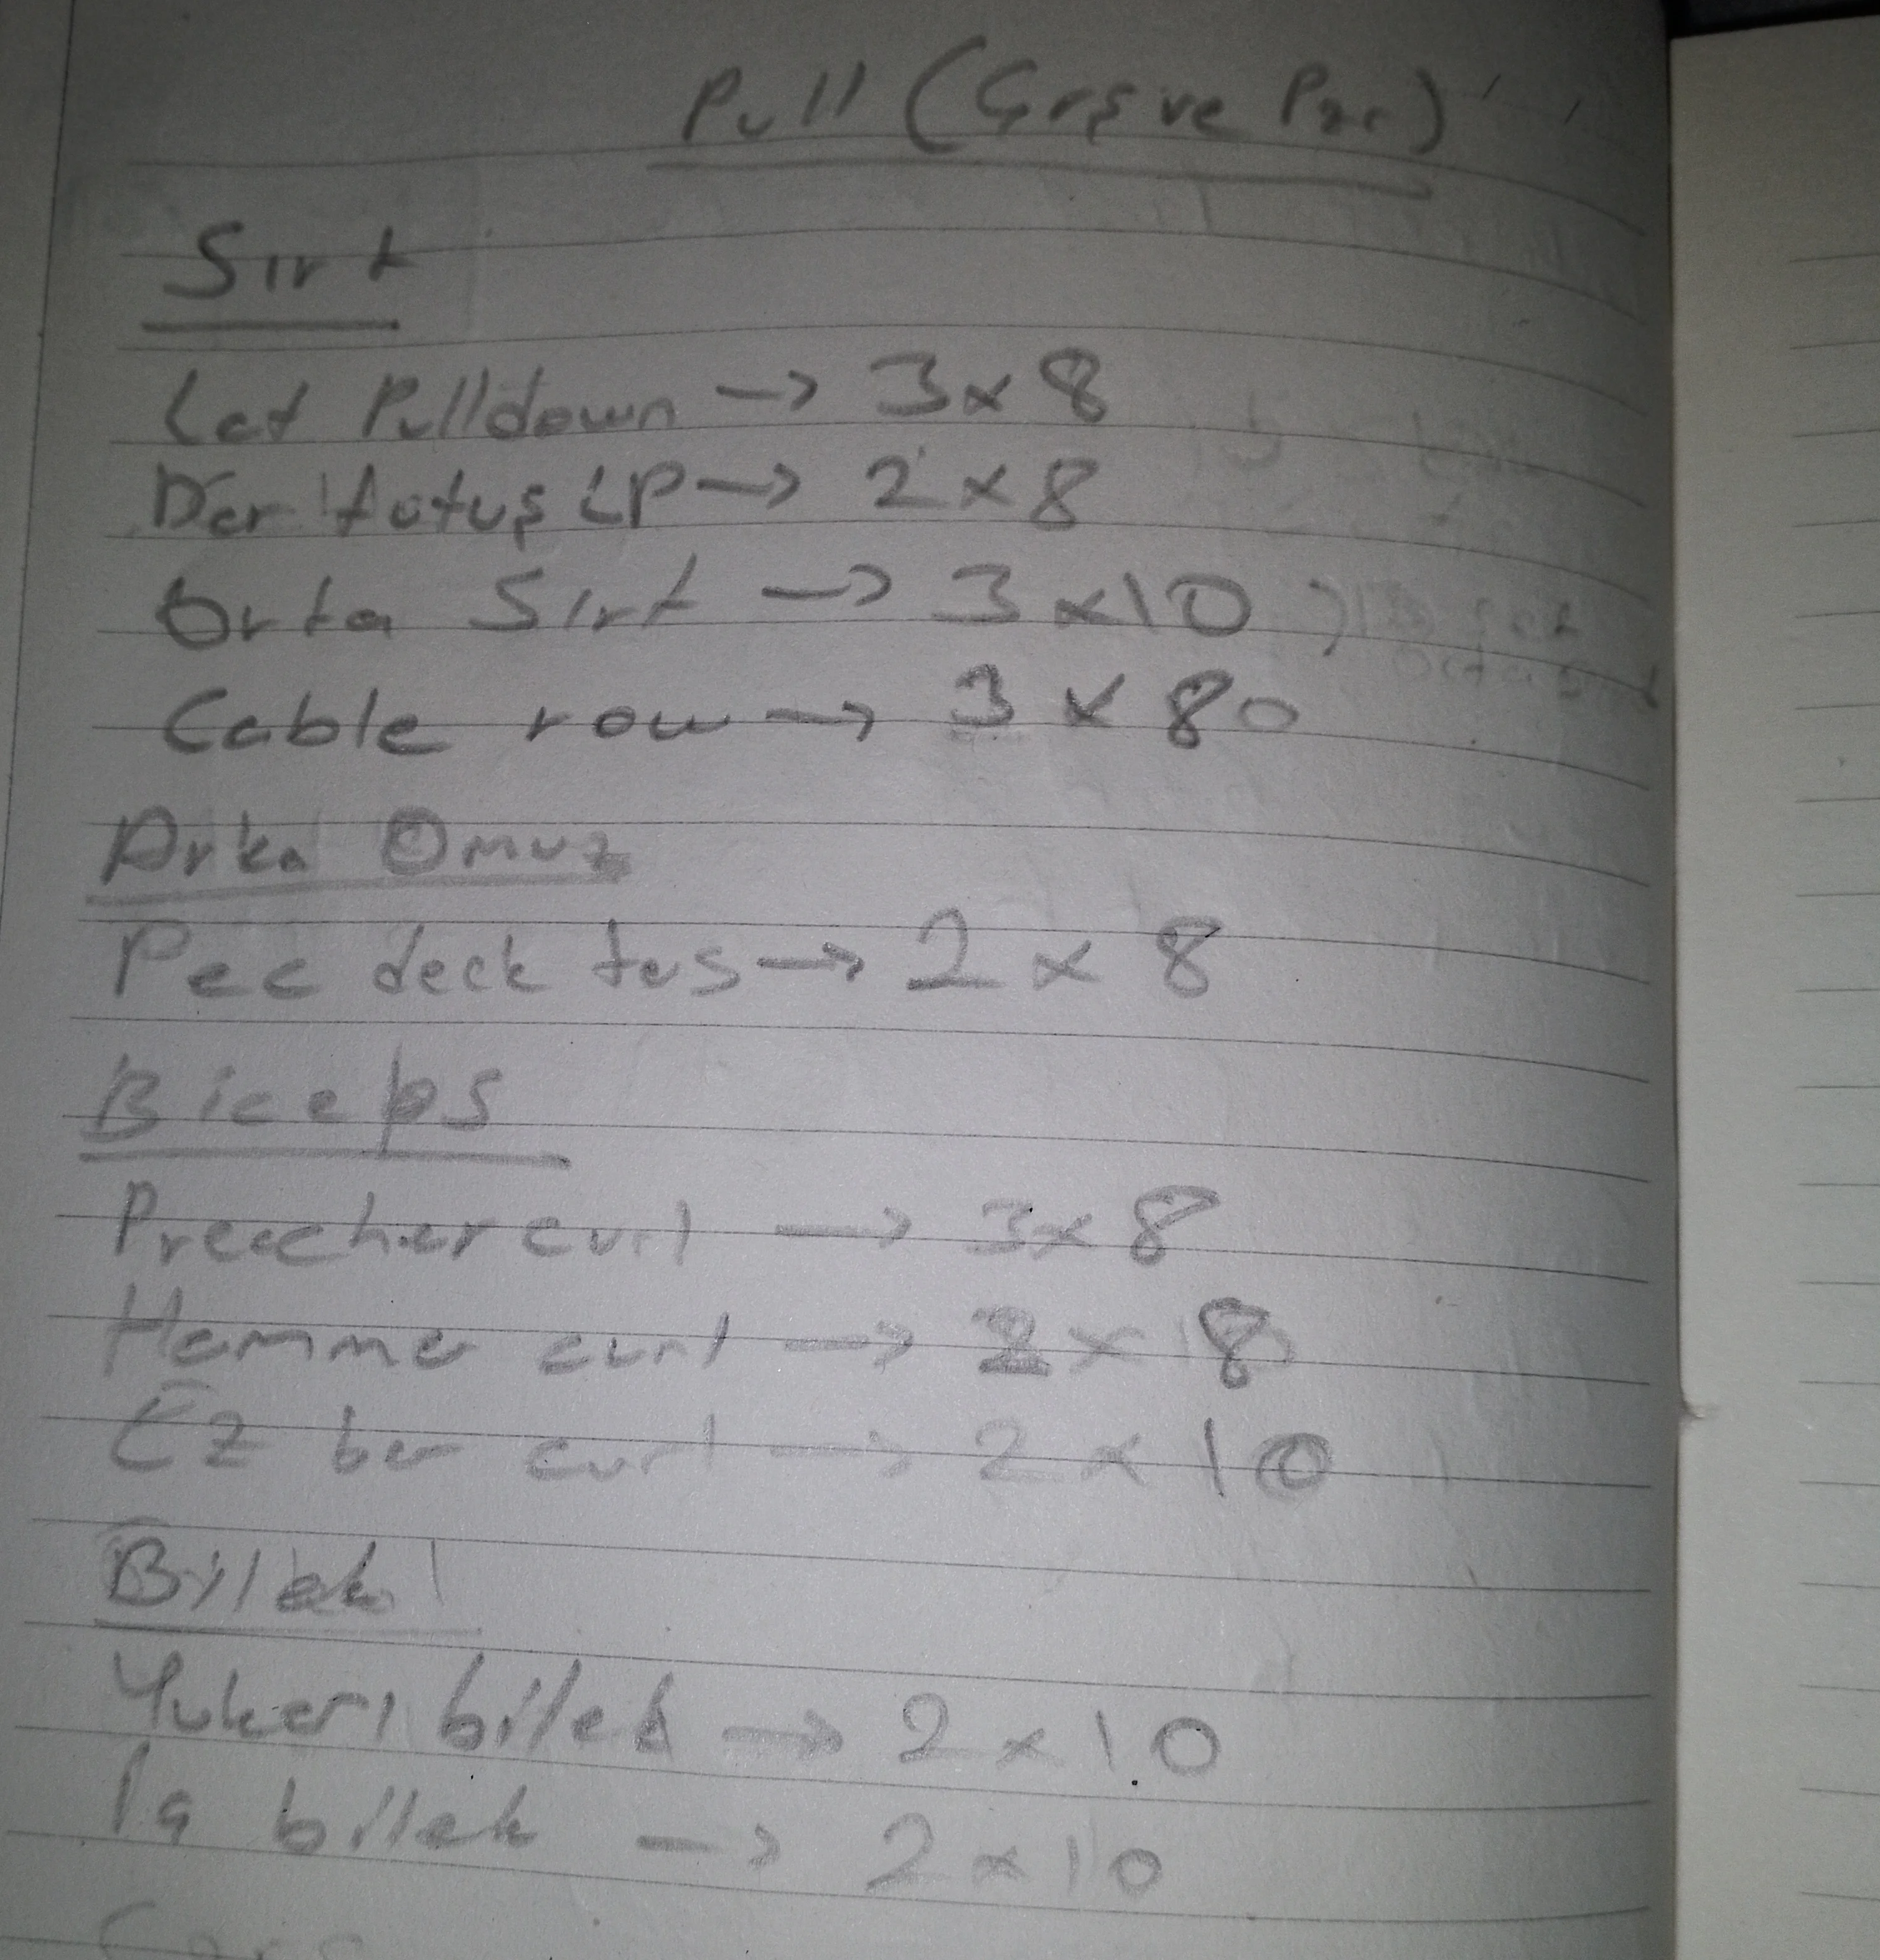 Pull (Çrş ve Pzr)
Sırt
Lat Pulldown → 3x8
Dar tutuş LP → 2x8
Orta Sırt → 3x10
Cable row → 3x80
Arka Omuz
Pec deck ters → 2x8
Biceps
Preacher curl → 3x8
Hammer curl → 2x8
EZ bar curl → 2x10
Bilek
Yukarı bilek → 2x10
İç bilek → 2x10